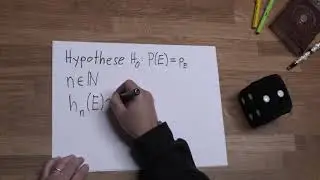 Hypothese H₀: P(E) = p_E
n ∈ ℕ
hₙ(E)